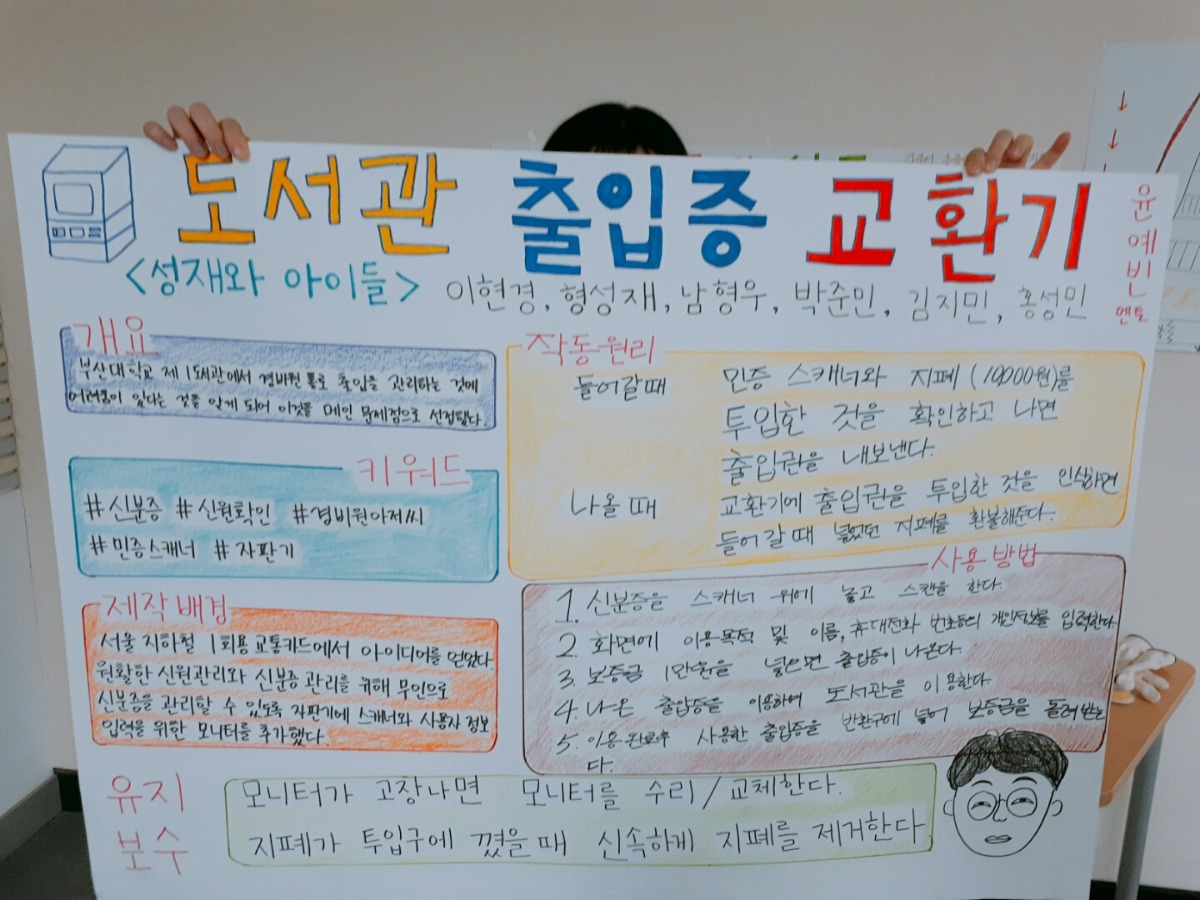 도서관 출입증 교환기
<성재와 아이들> 이현경, 형성재, 남형우, 박준민, 김지민, 홍성민
윤예빈
멘토
개요
부산대학교 제 1도서관에서 경비원 출입을 관리하는 것에
어려움이 있다는 것을 알게 되어 이것을 메인 문제점으로 선정했다.
키워드
#신분증 #신원확인 #경비원아저씨
#민증스캐너 #자판기
제작 배경
서울 지하철 1회용 교통카드에서 아이디어를 얻었다.
원활한 신원관리와 신분증 관리를 위해 무인으로
신분증을 관리할 수 있도록 자판기에 스캐너와 사용자 정보
입력을 위한 모니터를 추가했다.
작동원리
들어갈때 민증 스캐너와 지폐 (10,000원)를
투입한 것을 확인하고 나면
출입권을 내보낸다.
나올 때 교환기에 출입권을 투입한 것을 인식하면
들어갈 때 넣었던 지폐를 환불해준다.
사용 방법
1. 신분증을 스캐너 위에 놓고 스캔을 한다.
2. 화면에 이용목적 및 이름, 휴대전화 번호등의 개인정보를 입력한다
3. 보증금 1만원을 넣으면 출입증이 나온다.
4. 나온 출입증을 이용하여 도서관을 이용한다
5. 이용 완료후 사용한 출입증을 반환구에 넣어 보증금을 돌려받는
다.
유지
보수
모니터가 고장나면 모니터를 수리/교체한다.
지폐가 투입구에 꼈을 때 신속하게 지폐를 제거한다.